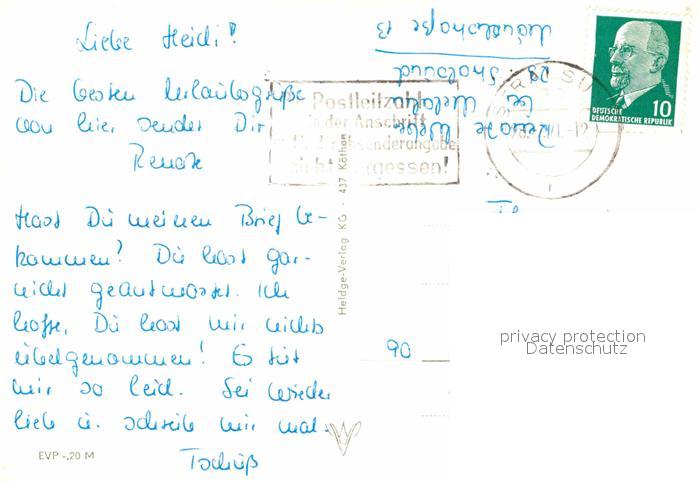 Liebe Heidi!
Die besten Urlaubsgrüße
von hier sendet Dir
Renate
Hast Du meinen Brief be-
kommen? Du hast gar-
nicht geantwortet. Ich
hoffe, Du hast mir nichts
übelgenommen! Es tut
mir so leid. Sei wieder
lieb u. schreib mir mal.
Tschüß
EVP -,20 M
Heldge-Verlag KG · 437 Köthen
Postleitzahl
in der Anschrift
und Absenderangabe
nicht vergessen!
Renate Weber
bei
23 Stralsund
13
STRALSUND
10
DEUTSCHE
DEMOKRATISCHE REPUBLIK
90
privacy protection
Datenschutz